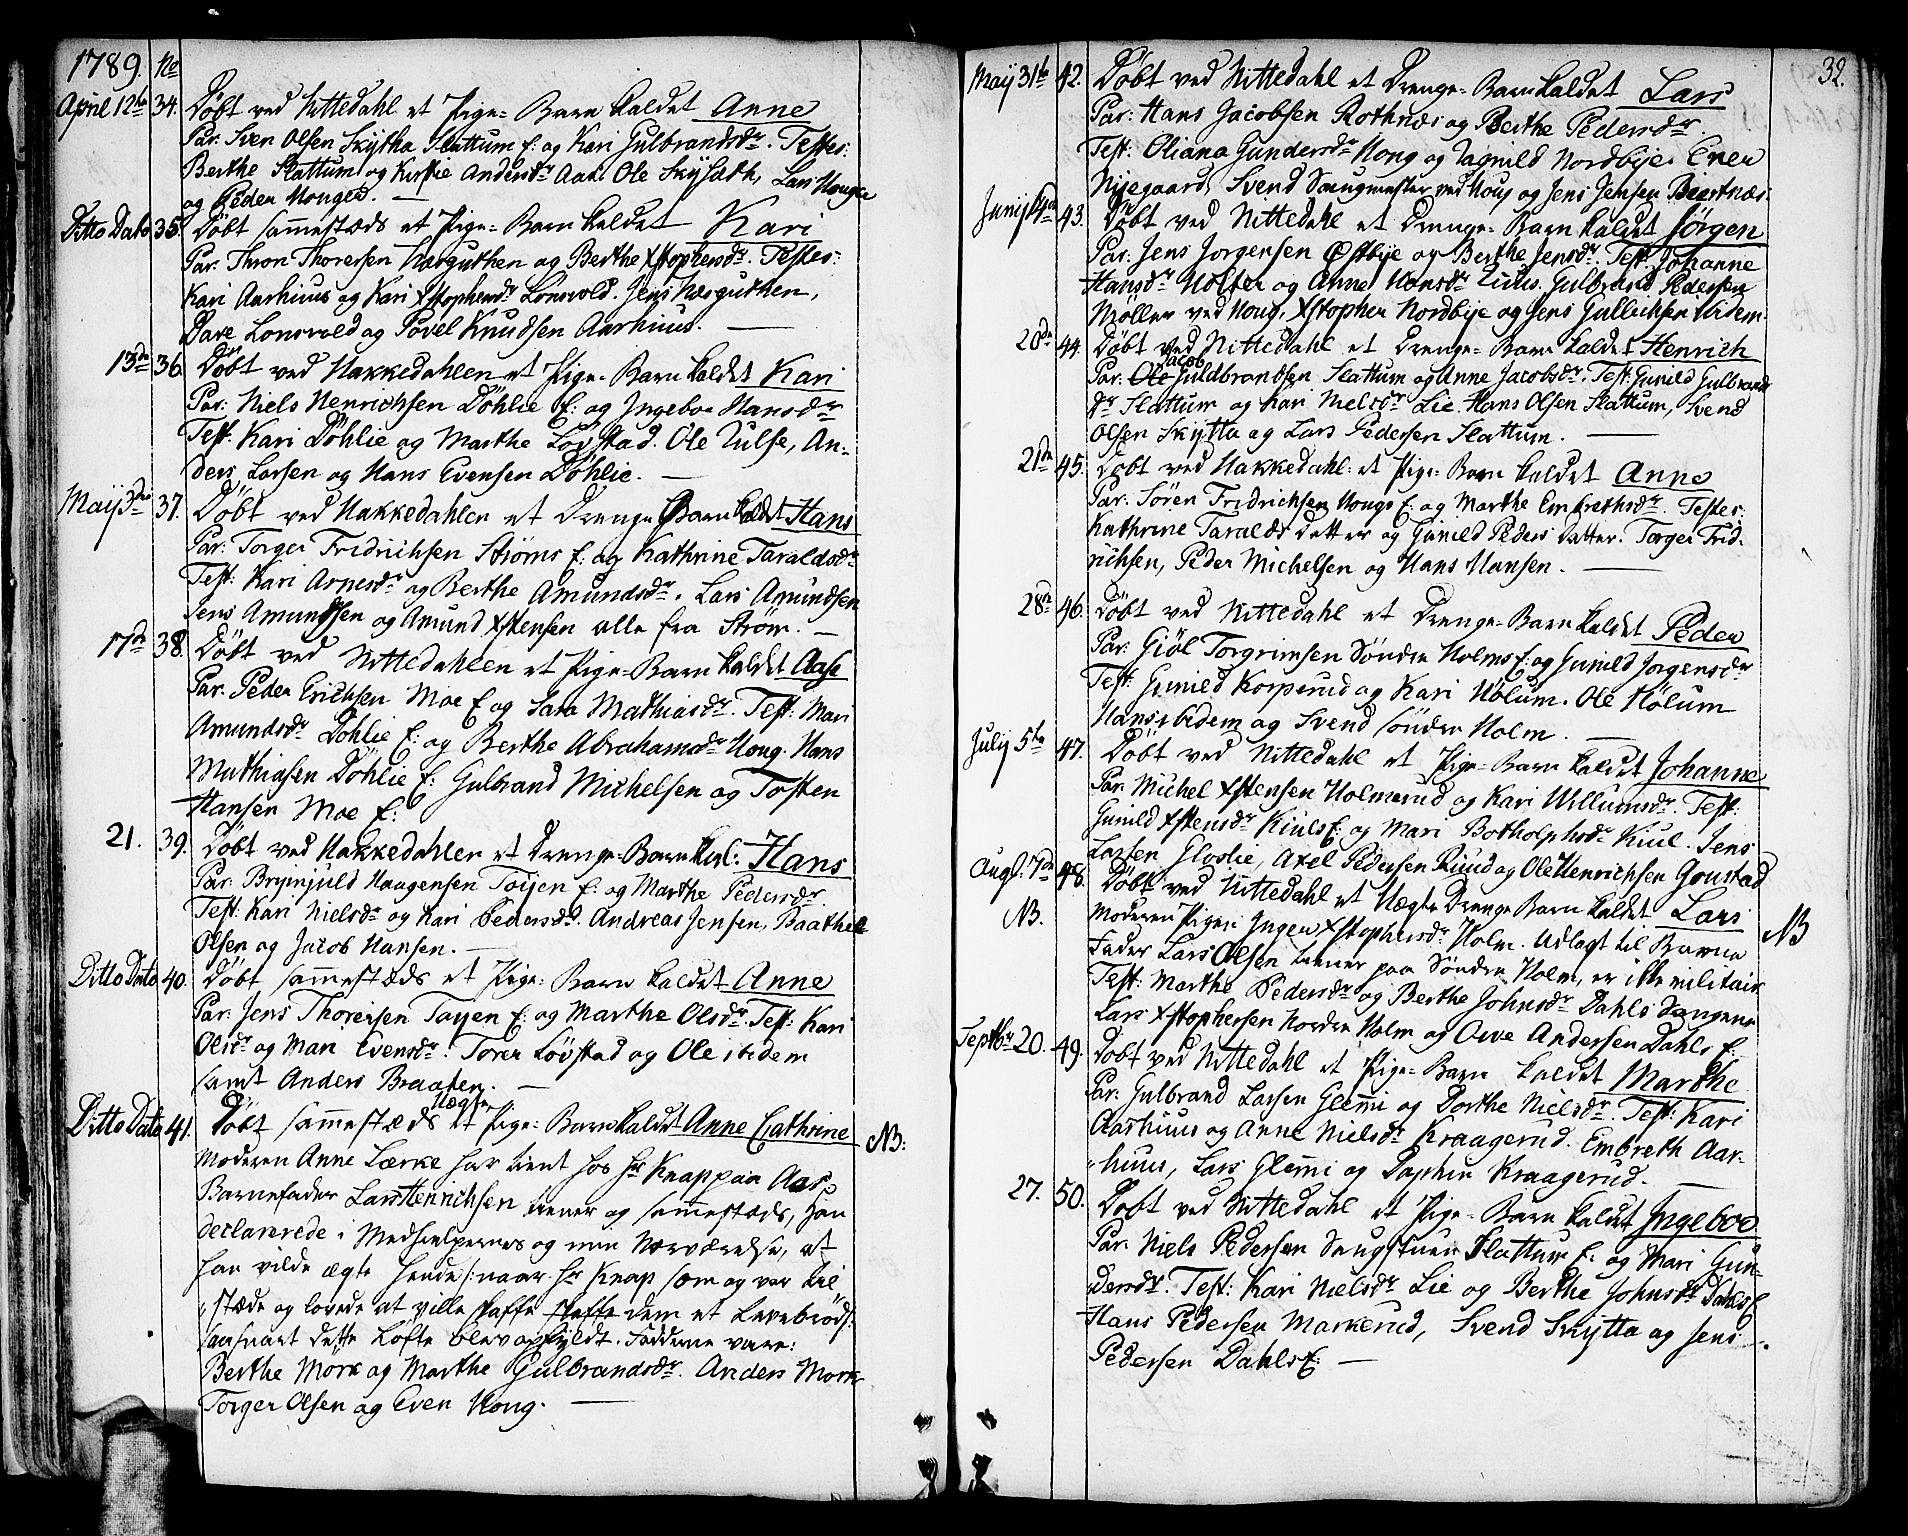 1789. No
April 12te 34. Döbt ved Nittedahl et Pige-Barn kaldet Anne
Par. Sven Olsen Skytha Slattum E: og Kari Gulbrandsdr. Testes:
Berthe Slattum og Kirstie Andersdr Aas. Ole Skyseth, Lars Houger
og Peder Houged. —
Ditto Dato 35. Döbt sammestæds et Pige-Barn kaldet Kari
Par: Thron Thoresen Harguthen og Berthe Xstophersdr. Testes:
Kari Aarhuus og Kari Xstophersdr Lonsvold. Jens Harguthen,
Dave Lonsvold og Povel Knudsen Aarhuus. —
13de 36. Döbt ved Hakkedahlen et Pige-Barn kaldet Kari
Par: Niels Henrichsen Döhlie E: og Ingebor Hansdr
Test: Kari Döhlie og Marthe Lövstad. Ole Tulse, An-
ders Larsen og Hans Evensen Döhlie. —
Maij 3die 37. Döbt ved Hakkedahlen et Drenge Barn kaldet Hans
Par: Torger Fridrichsen Ströms E: og Kathrine Taraldsdr
Test: Kari Arnesdr og Berthe Amundsdr. Lars Amundsen
Jens Amundsen og Amund Xstensen alle fra Ström. —
17de 38. Döbt ved Nittedahlen et Pige-Barn kaldet Aase
Par: Peder Erichsen Moe E og Sara Mathiasdr. Test: Mari
Amundsdr Döhlie E: og Berthe Abrahamsdr Houg. Hans
Mathiasen Döhlie E: Gulbrand Michelsen og Tosten
Hansen Moe E:
21. 39. Döbt ved Hakkedahlen et Drenge-Barn kal: Hans
Par: Brynjuld Haagensen Töyen E: og Marthe Pedersdr.
Test: Kari Nielsdr og Kari Pedersdr. Andreas Jensen, Baathel
Olsen og Jacob Hansen. —
Ditto Dato 40. Döbt sammestæds et Pige-Barn kaldet Anne
Par: Jens Thoresen Töyen E: og Marthe Olsdr. Test: Kari
Olsdr og Mari Evensdr: Torer Lövstad og Ole ibidem
samt Anders Braaten. —
Ditto Dato 41. Döbt sammestæds et Uægte Pige-Barn kaldet Anne Cathrine NB:
Moderen Anne Lærke har tient hos Hr Knap paa Aas,
Barnefader Lars Henrichsen tiener og sammestæds, han
declarerede i Medhielpernes og min Nærværelse, at
han vilde ægte hende /: naar Hr Knap som og var til
stæde og lovede at ville skaffe skaffe dem et Levebröd :/
saasnart dette Löfte blev opfyldt. Fadderne vare:
Berthe Mörk og Marthe Gulbrandsdr. Anders Mörk
Torger Olsen og Even Houg. —
32.
Maij 31te 42. Döbt ved Nittedahl et Drenge-Barn kaldet Lars
Par: Hans Jacobsen Rothnæs og Berthe Pedersdr.
Test: Oliana Gundersdr Houg og Ragnild Nordbye. Even
Nyegaard, Svend Saugmester ved Houg og Jens Jensen Biertnæs.
Junij 14de 43. Döbt ved Nittedahl et Drenge-Barn kaldet Jörgen
Par: Jens Jorgensen Østbye og Berthe Jensdr. Test: Johanne
Hansdr Holter og Anne Hansdr Tuus. Gulbrand Pedersen
Möller ved Houg, Xstopher Nordbye og Jens Gullichsen ibidem.
20de 44. Döbt ved Nittedahl et Drenge-Barn kaldet Henrich
Par: Ole Jacob Guldbrandsen Slattum og Anne Jacobsdr. Test: Gunild Gulbrands
dr Slattum og Kari Nielsdr Lie. Hans Olsen Slattum, Svend
Olsen Skytta og Lars Pedersen Slattum. —
21de 45. Döbt ved Hakkedahl: et Pige-Barn kaldet Anne
Par: Sören Fridrichsen Hougs E: og Marthe Embrethsdr. Testes:
Kathrine Taralds Datter og Gunild Peders Datter. Torger Frid-
richsen, Peder Michelsen og Hans Hansen. —
28de 46. Döbt ved Nittedahl et Drenge-Barn kaldet Peder
Par: Giöl Torgrimsen Söndre Holms E: og Gunild Jorgensdr
Test: Gunild Korperud og Kari Hölum. Ole Hölum
Hans ibidem og Svend söndre Holm. —
Julij 5te 47. Döbt ved Nittedahl et Pige-Barn kaldet Johanne
Par: Michel Xstensen Holmerud og Kari Willumsdr. Test:
Gunild Xstensdr Kiuls E: og Mari Botholphsdr Kiul. Jens
Larsen Gloslie, Axel Pedersen Ruud og Ole Henrichsen Grustad
Aug. 7de 48. Döbt ved Nittedahl et Uægte Drenge Barn kaldet Lars
NB. Moderen Pigen Inger Xstophersdr Holm. Udlagt til Barne NB
Fader Lars Olsen tiener paa Söndre Holm, er ikke militair
Test: Marthe Pedersdr og Berthe Johnsdr Dahls
Lars Xstophersen Nordre Holm og Ove Andersen Dahls E:
Septbr 20. 49. Döbt ved Nittedahl et Pige-Barn kaldet Marthe
Par: Gulbrand Larsen Glemmi og Dorthe Nielsdr. Test: Kari
Aarhuus og Anne Nielsdr Kraagerud. Embreth Aar-
huus, Lars Glemmi og Daphin Kraagerud. —
27. 50. Döbt ved Nittedahl et Pige-Barn kaldet Ingebor
Par: Niels Pedersen Saugstuen Slattum E: og Mari Gun-
dersdr. Test: Kari Nielsdr Lie og Berthe Johnsdr Dahls E
Hans Pedersen Markerud, Svend Skytta og Jens
Pedersen Dahls E: —